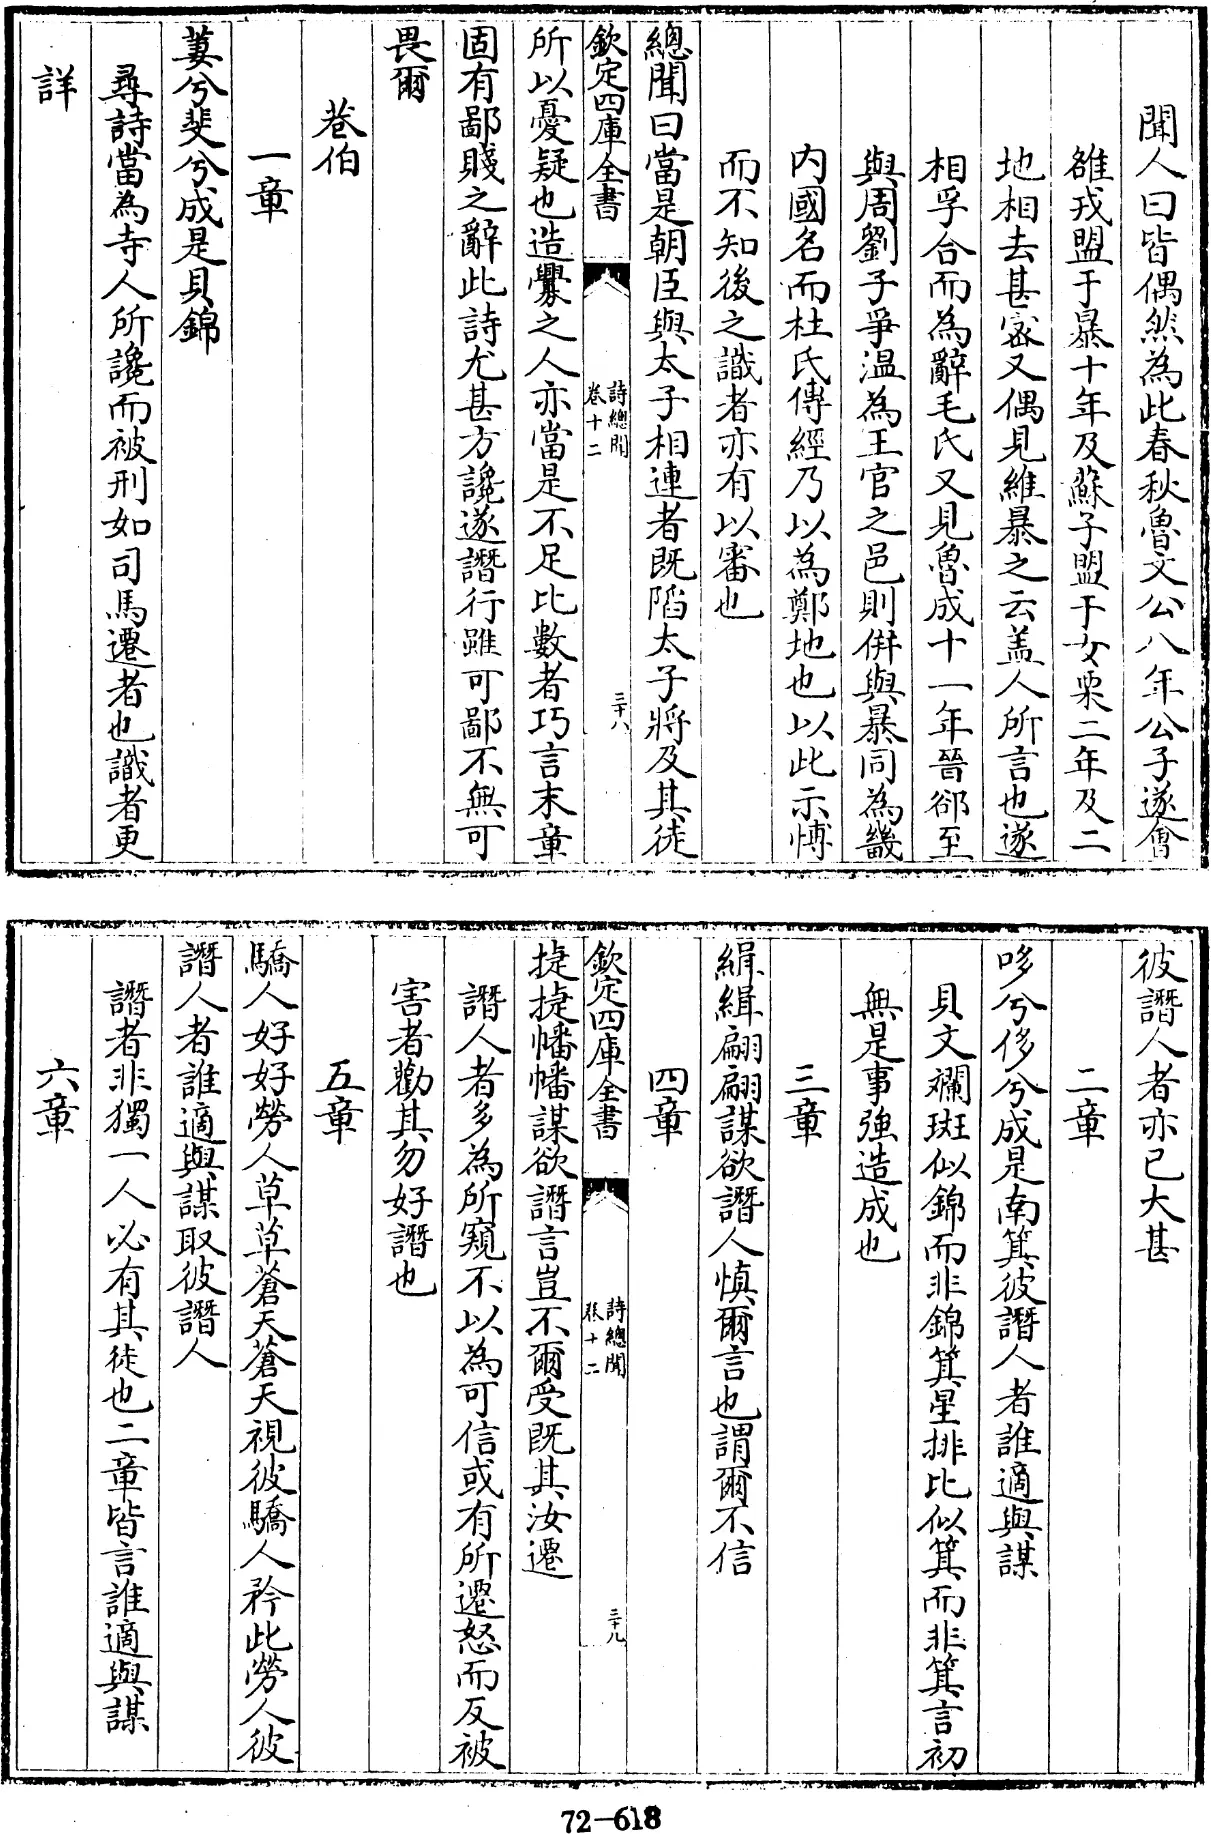 聞人曰皆偶然為此春秋魯文公八年公子遂會
雒戎盟于暴十年及蘇子盟于女栗二年及二
地相去甚宻又偶見維暴之云盖人所言也遂
相孚合而為辭毛氏又見魯成十一年晉郤至
與周劉子爭温為王官之邑則併與暴同為畿
内國名而杜氏傳經乃以為鄭地也以此示愽
而不知後之識者亦有以審也
總聞曰當是朝臣與太子相連者既陷太子將及其徒
欽定四庫全書
詩總聞
卷十二
三十八
所以憂疑也造釁之人亦當是不足比數者巧言末章
固有鄙賤之辭此詩尤甚方讒遂譖行雖可鄙不無可
畏爾
巷伯
一章
萋兮斐兮成是貝錦
尋詩當為寺人所讒而被刑如司馬遷者也識者更
詳
彼譖人者亦已大甚
二章
哆兮侈兮成是南箕彼譖人者誰適與謀
貝文斕斑似錦而非錦箕星排比似箕而非箕言初
無是事強造成也
三章
緝緝翩翩謀欲譖人慎爾言也謂爾不信
四章
欽定四庫全書
詩總聞
卷十二
三十九
捷捷幡幡謀欲譖言豈不爾受既其汝遷
譖人者多為所窺不以為可信或有所遷怒而反被
害者勸其勿好譖也
五章
驕人好好勞人草草蒼天蒼天視彼驕人矜此勞人彼
譖人者誰適與謀取彼譖人
譖者非獨一人必有其徒也二章皆言誰適與謀
六章
72-618